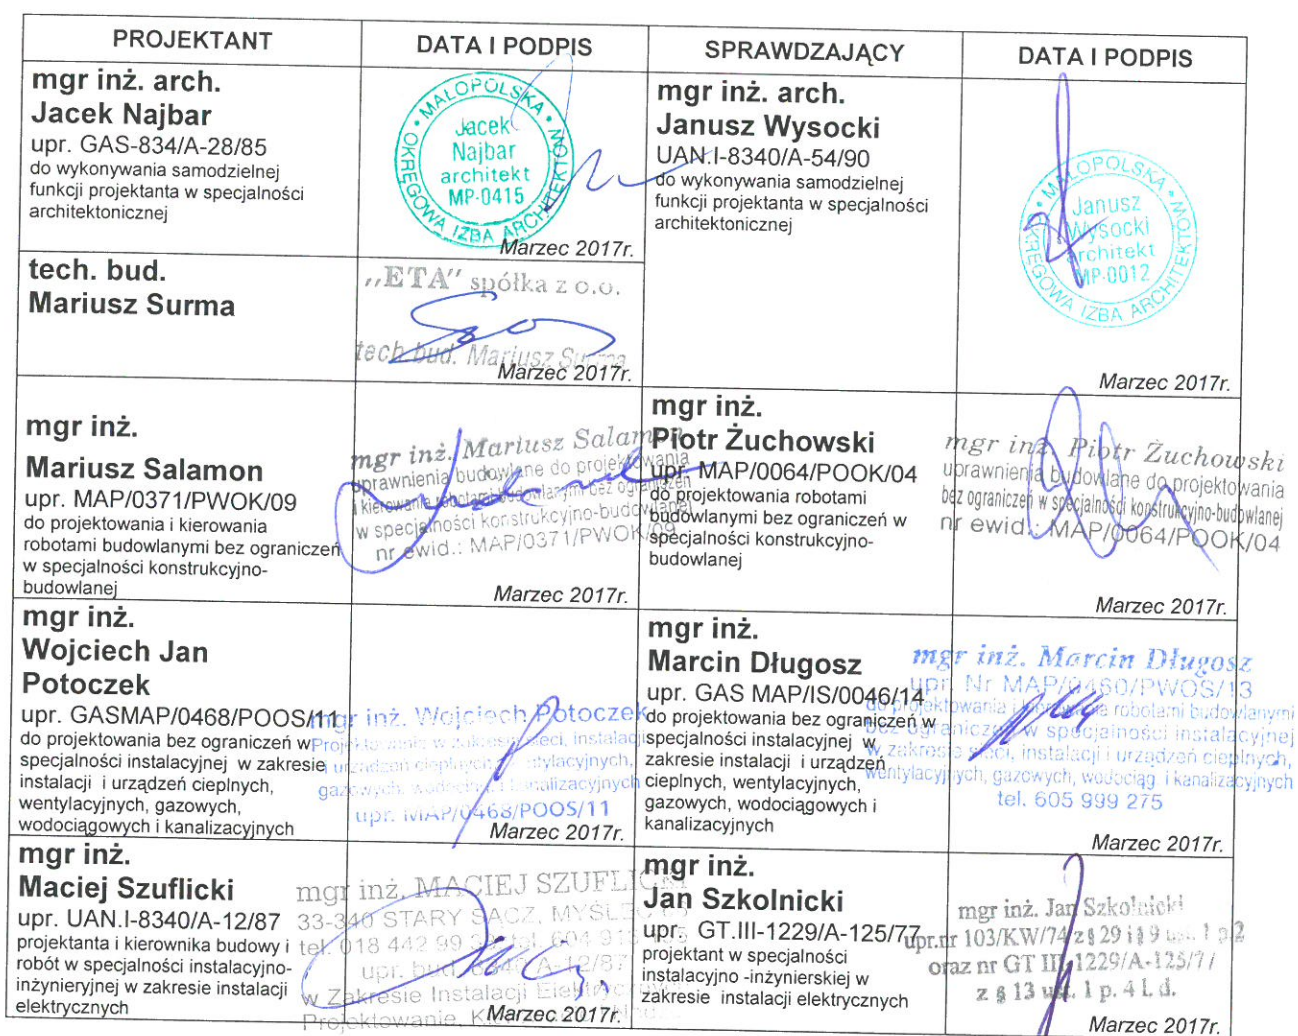 PROJEKTANT
DATA I PODPIS
SPRAWDZAJĄCY
DATA I PODPIS
mgr inż. arch.
Jacek Najbar
upr. GAS-834/A-28/85
do wykonywania samodzielnej
funkcji projektanta w specjalności
architektonicznej
MAŁOPOLSKA • OKRĘGOWA IZBA ARCHITEKTÓW •
Jacek
Najbar
architekt
MP-0415
Marzec 2017r.
mgr inż. arch.
Janusz Wysocki
UAN.I-8340/A-54/90
do wykonywania samodzielnej
funkcji projektanta w specjalności
architektonicznej
MAŁOPOLSKA • OKRĘGOWA IZBA ARCHITEKTÓW •
Janusz
Wysocki
architekt
MP-0012
Marzec 2017r.
tech. bud.
Mariusz Surma
„ETA” spółka z o.o.
tech.bud. Mariusz Surma
Marzec 2017r.
mgr inż.
Mariusz Salamon
upr. MAP/0371/PWOK/09
do projektowania i kierowania
robotami budowlanymi bez ograniczeń
w specjalności konstrukcyjno-
budowlanej
mgr inż. Mariusz Salamon
uprawnienia budowlane do projektowania
i kierowania robotami budowlanymi bez ograniczeń
w specjalności konstrukcyjno-budowlanej
nr ewid.: MAP/0371/PWOK/09
Marzec 2017r.
mgr inż.
Piotr Żuchowski
upr. MAP/0064/POOK/04
do projektowania robotami
budowlanymi bez ograniczeń w
specjalności konstrukcyjno-
budowlanej
mgr inż. Piotr Żuchowski
uprawnienia budowlane do projektowania
bez ograniczeń w specjalności konstrukcyjno-budowlanej
nr ewid.: MAP/0064/POOK/04
Marzec 2017r.
mgr inż.
Wojciech Jan
Potoczek
upr. GASMAP/0468/POOS/11
do projektowania bez ograniczeń w
specjalności instalacyjnej w zakresie
instalacji i urządzeń cieplnych,
wentylacyjnych, gazowych,
wodociągowych i kanalizacyjnych
mgr inż. Wojciech Potoczek
Projektowanie w zakresie sieci, instalacji
i urządzeń cieplnych, wentylacyjnych,
gazowych, wodociąg. i kanalizacyjnych
upr. MAP/0468/POOS/11
Marzec 2017r.
mgr inż.
Marcin Długosz
upr. GAS MAP/IS/0046/14
do projektowania bez ograniczeń w
specjalności instalacyjnej w
zakresie instalacji i urządzeń
cieplnych, wentylacyjnych,
gazowych, wodociągowych i
kanalizacyjnych
mgr inż. Marcin Długosz
upr. Nr MAP/0460/PWOS/13
do projektowania i kierowania robotami budowlanymi
bez ograniczeń w specjalności instalacyjnej
w zakresie sieci, instalacji i urządzeń cieplnych,
wentylacyjnych, gazowych, wodociąg. i kanalizacyjnych
tel. 605 999 275
Marzec 2017r.
mgr inż.
Maciej Szuflicki
upr. UAN.I-8340/A-12/87
projektanta i kierownika budowy i
robót w specjalności instalacyjno-
inżynieryjnej w zakresie instalacji
elektrycznych
mgr inż. MACIEJ SZUFLICKI
33-340 STARY SĄCZ, MYŚLEC
tel. 018 442 99 tel. 604 913
upr. bud. 8340/A-12/87
w Zakresie Instalacji Elektrycznych
Projektowanie,
Marzec 2017r.
mgr inż.
Jan Szkolnicki
upr. GT.III-1229/A-125/77
projektant w specjalności
instalacyjno -inżynierskiej w
zakresie instalacji elektrycznych
mgr inż. Jan Szkolnicki
upr.nr 103/KW/74 z § 29 i § 9 ust. 1 p.2
oraz nr GT III 1229/A-125/77
z § 13 ust. 1 p. 4 l. d.
Marzec 2017r.